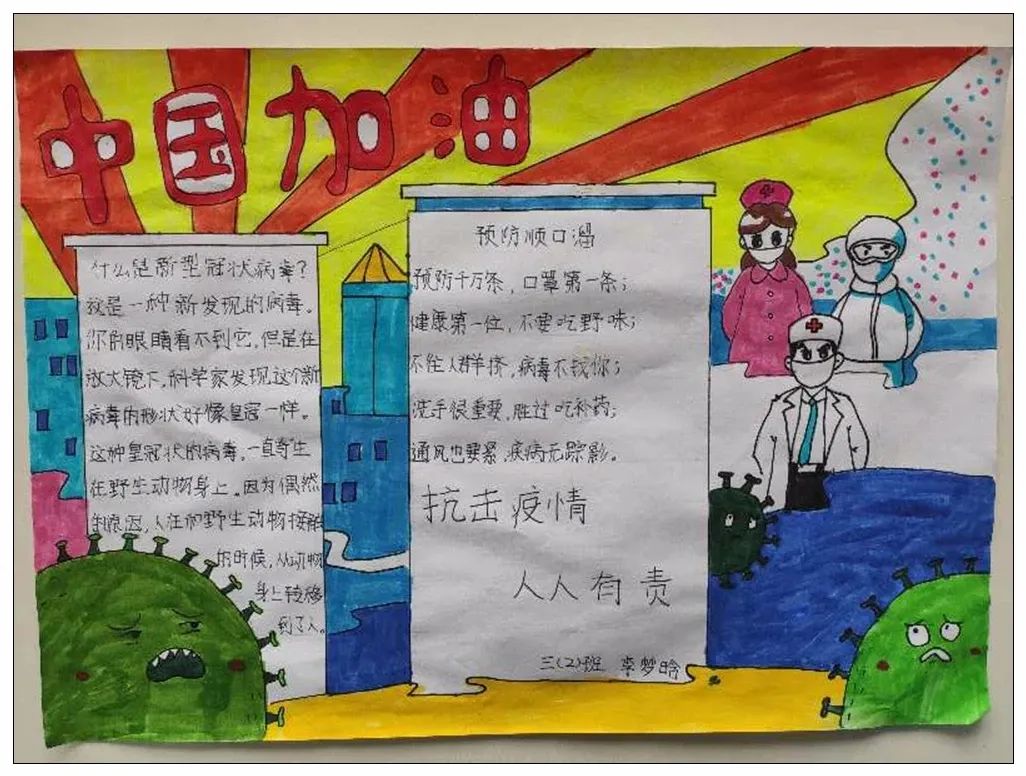 中国加油
什么是新型冠状病毒?
就是一种新发现的病毒。
你的眼睛看不到它,但是在
放大镜下,科学家发现这个新
病毒的形状好像皇冠一样。
这种皇冠状的病毒,一直寄生
在野生动物身上。因为偶然
的原因,人在和野生动物接触
的时候,从动物
身上转移
到了人。
预防顺口溜
预防千万条,口罩第一条;
健康第一位,不要吃野味;
不往人群挤,病毒不找你;
洗手很重要,胜过吃补药;
通风也要紧,疾病无踪影。
抗击疫情
人人有责
三(2)班 李梦晗